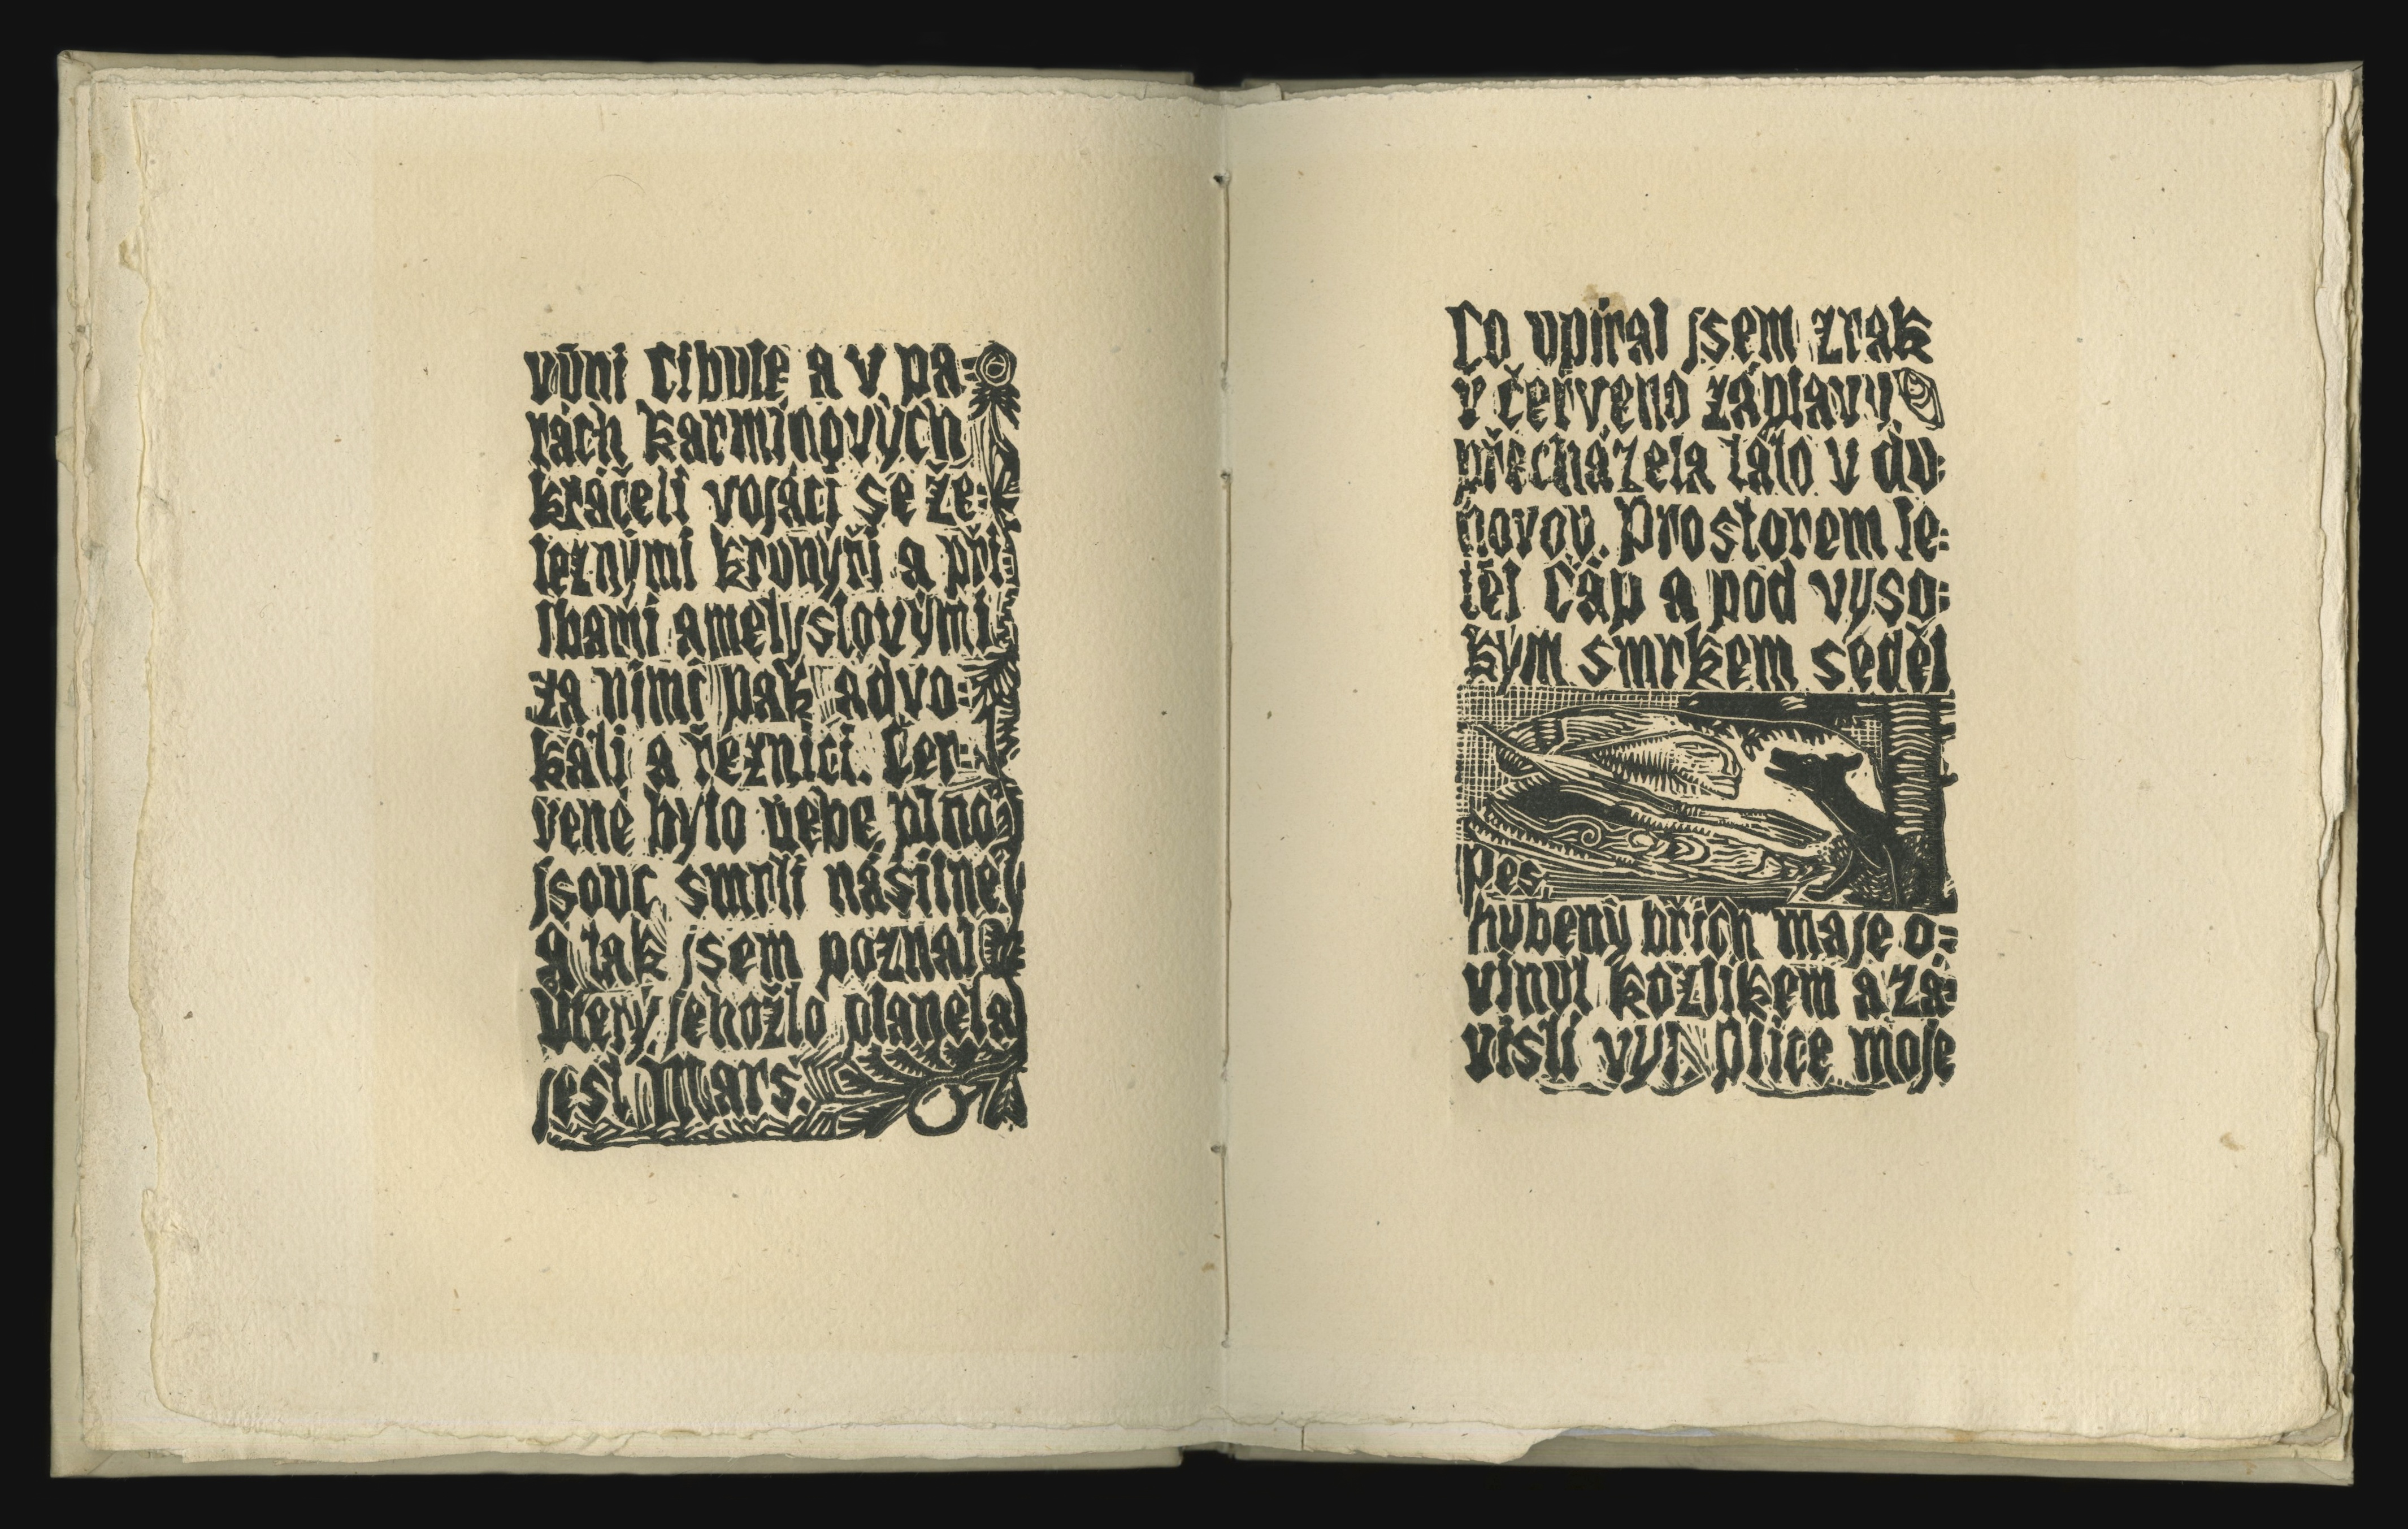 vůni cibule a v pa-
rách karmínových
kráčeli vojáci se že:
leznými krunýři a při
lbami ametystovými
za nimi pak advo:
káti a řezníci. Čer:
vené bylo nebe, plno
jsouc smrti násilné,
a tak jsem poznal
úterý, jehožto planeta
jest Mars.
Co upíral jsem zrak
v červeno záplavy
přecházela táto v du:
hovou. Prostorem le:
těl čáp a pod vyso:
kým smrkem seděl
pes,
hubený břich maje o:
vinut kozlíkem a zá:
visti vyt. Plíce moje